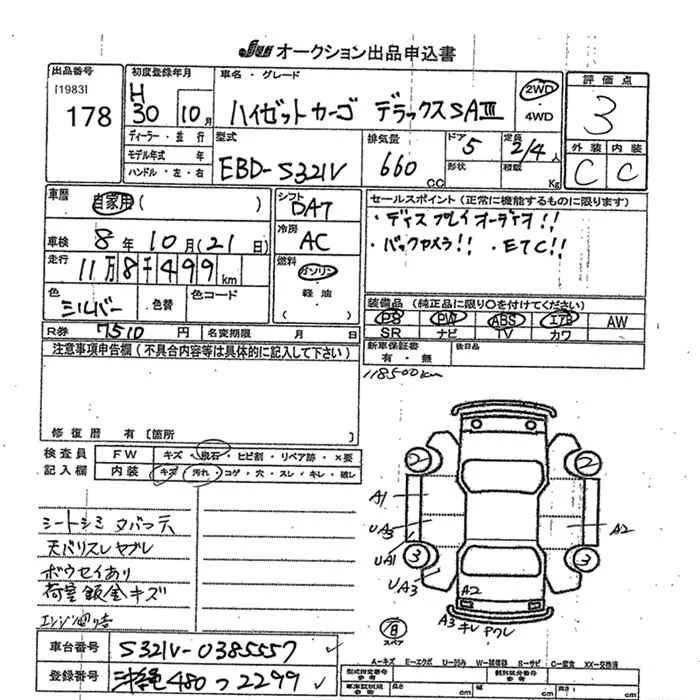 JU オークション出品申込書
出品番号
[1983]
178
初度登録年月
H 30年 10月
車名・グレード
ハイゼットカーゴ デラックスSAⅢ
2WD
・
4WD
評価点
3
外装 内装
C C
ディーラー・並行
モデル年式 年
ハンドル・左・右
型式
EBD-S321V
排気量
660 CC
ドア
5
形状
定員
2/4人
積載
Kg
車歴
自家用 ( )
車検 8年 10月 (21日)
走行
11万8千499km
シフト
DA7
冷房
AC
燃料
ガソリン
・
軽油
( )
色
シルバー
色替
色コード
R券 7510 円 名変期限 月 日
セールスポイント(正常に機能するものに限ります)
・ディスプレイオーディオ!!
・バックカメラ!! ・ETC!!
装備品(純正品に限り○を付けてください)
PS PW ABS エアB AW
SR ナビ TV カワ
新車保証書
有・無
後日品
118500km
注意事項申告欄(不具合内容等は具体的に記入して下さい)
修復歴 有〔箇所 〕
検査員
記入欄
FW キズ・飛石・ヒビ割・リペア跡・×要
内装 キズ・汚れ・コゲ・穴・スレ・キレ・破レ
シートシミ タバコ穴
天バリスレヤブレ
ボウセイあり
荷室鈑金キズ
2 2
A1
UA3
UA1
UA3
A2
3 3
A2
A3 キレ ヤブレ
スペア
車台番号 S321V-0385557
登録番号 沖縄480つ2299
A-キズ E-エクボ U-凹み W-補修跡 S-サビ C-腐食 XX-交換済
型式指定番号
参考
類別区分番号
参考
長さ cm 幅 cm 高さ cm